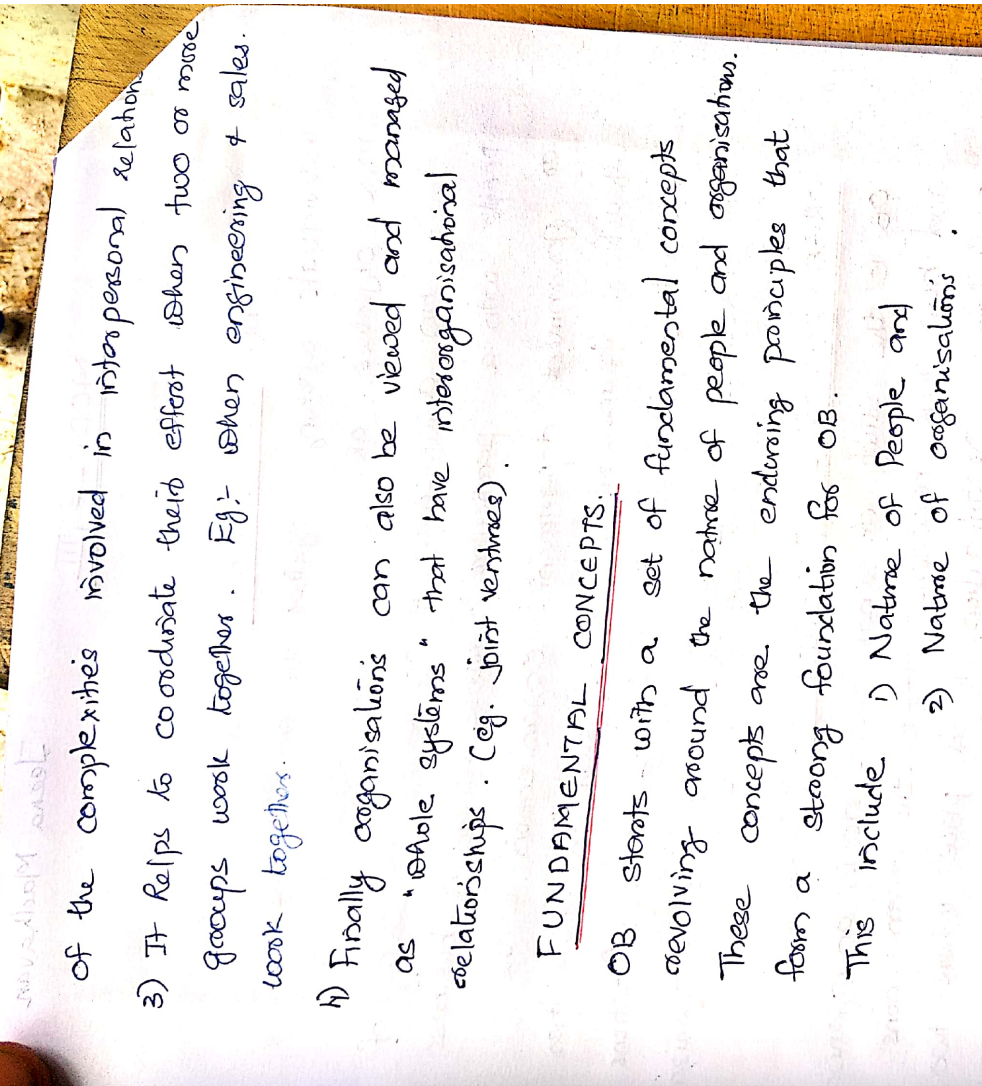 of the complexities involved in interpersonal relations
3) It helps to coordinate their effort when two or more
groups work together. Eg:- when engineering & sales.
work together.
4) Finally organisations can also be viewed and managed
as "whole systems" that have interorganisational
relationships. (eg. joint ventures).
FUNDAMENTAL CONCEPTS.
OB starts with a set of fundamental concepts
revolving around the nature of people and organisations.
These concepts are the enduring principles that
form a strong foundation for OB.
This include 1) Nature of People and
2) Nature of organisations.